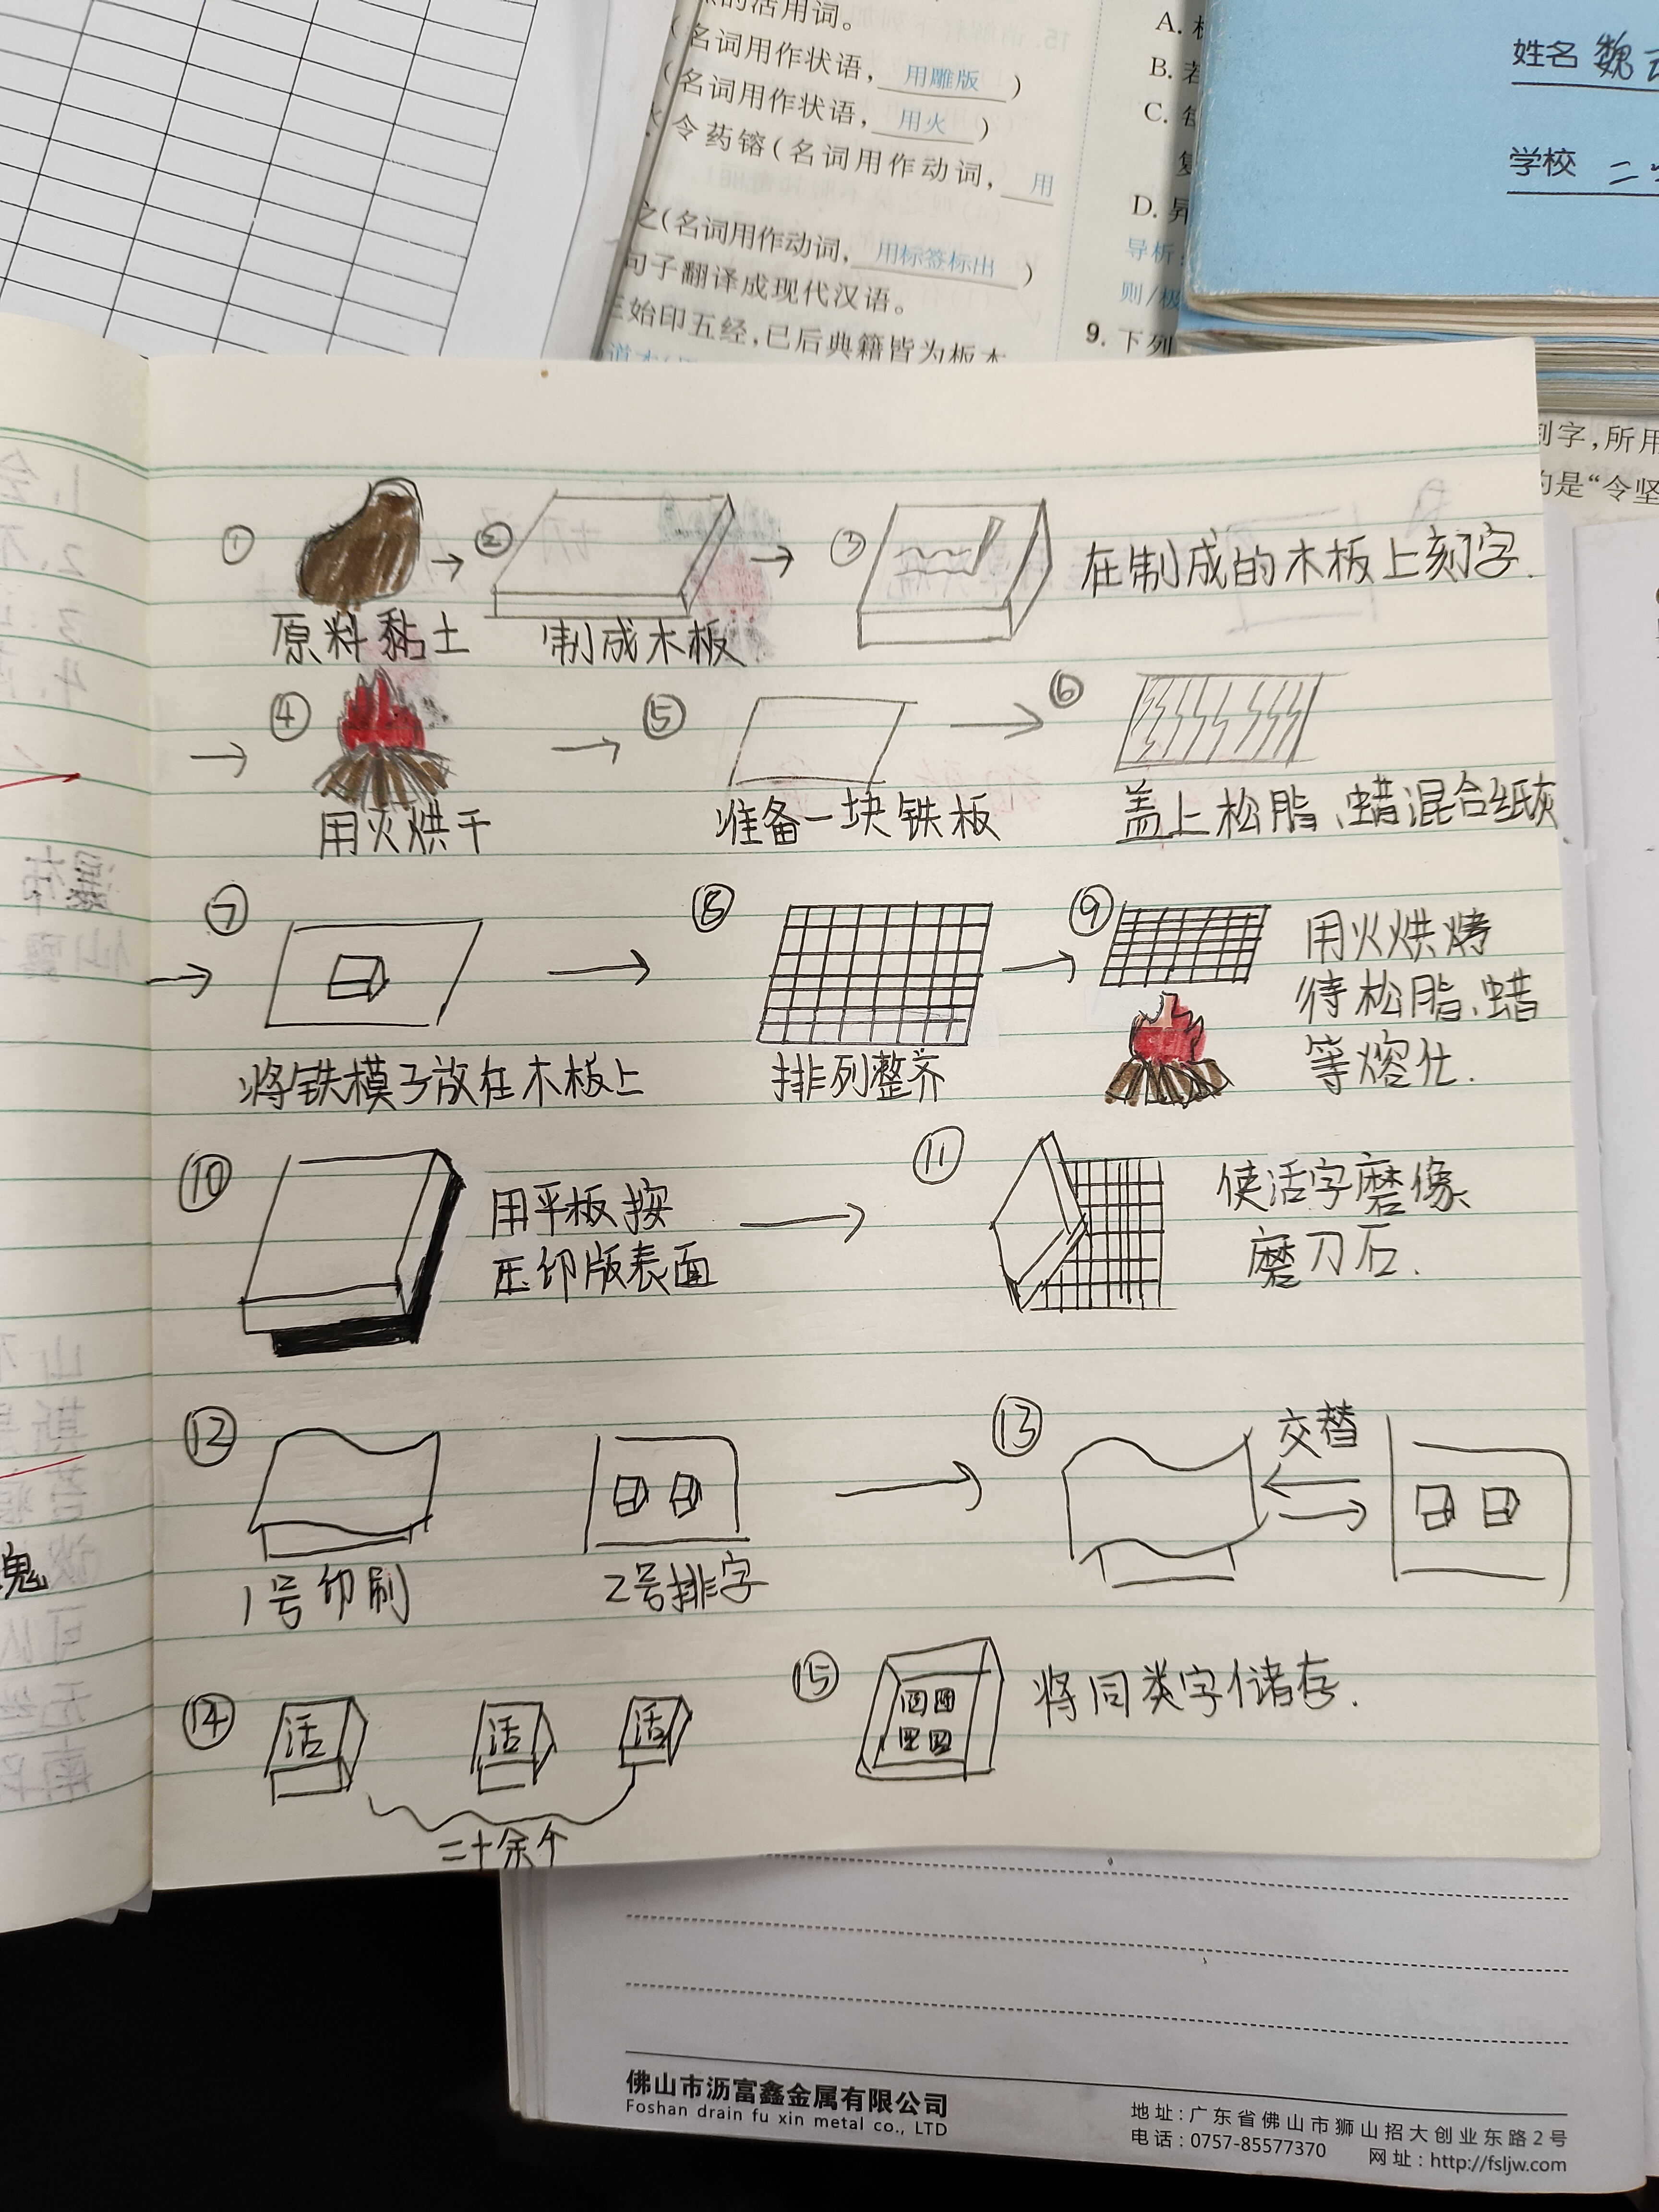 的活用词。
(名词用作状语，用雕版)
(名词用作状语，用火)
令药镕(名词用作动词，用
之(名词用作动词，用标签标出)
句子翻译成现代汉语。
始印五经，已后典籍皆为板本
A.
B.
C.
D.
导析：
则/极
9. 下列
姓名 魏
学校 二
刻字，所用
的是“令坚
① → ② → ③ 在制成的木板上刻字.
原料黏土 制成木板
→ ④ → ⑤ → ⑥
用火烘干 准备一块铁板 盖上松脂、蜡混合纸灰
→ ⑦ → ⑧ → ⑨ 用火烘烤
待松脂、蜡
等熔化.
将铁模子放在木板上 排列整齐
⑩ 用平板按
压印版表面
→ ⑪ 使活字磨像
磨刀石.
⑫ → ⑬ 交替
1号印刷 2号排字
⑭ 活 活 活
二十余个
⑮ 将同类字储存.
魂
佛山市沥富鑫金属有限公司
Foshan drain fu xin metal co., LTD
地址：广东省佛山市狮山招大创业东路2号
电话：0757-85577370 网址：http://fsljw.com